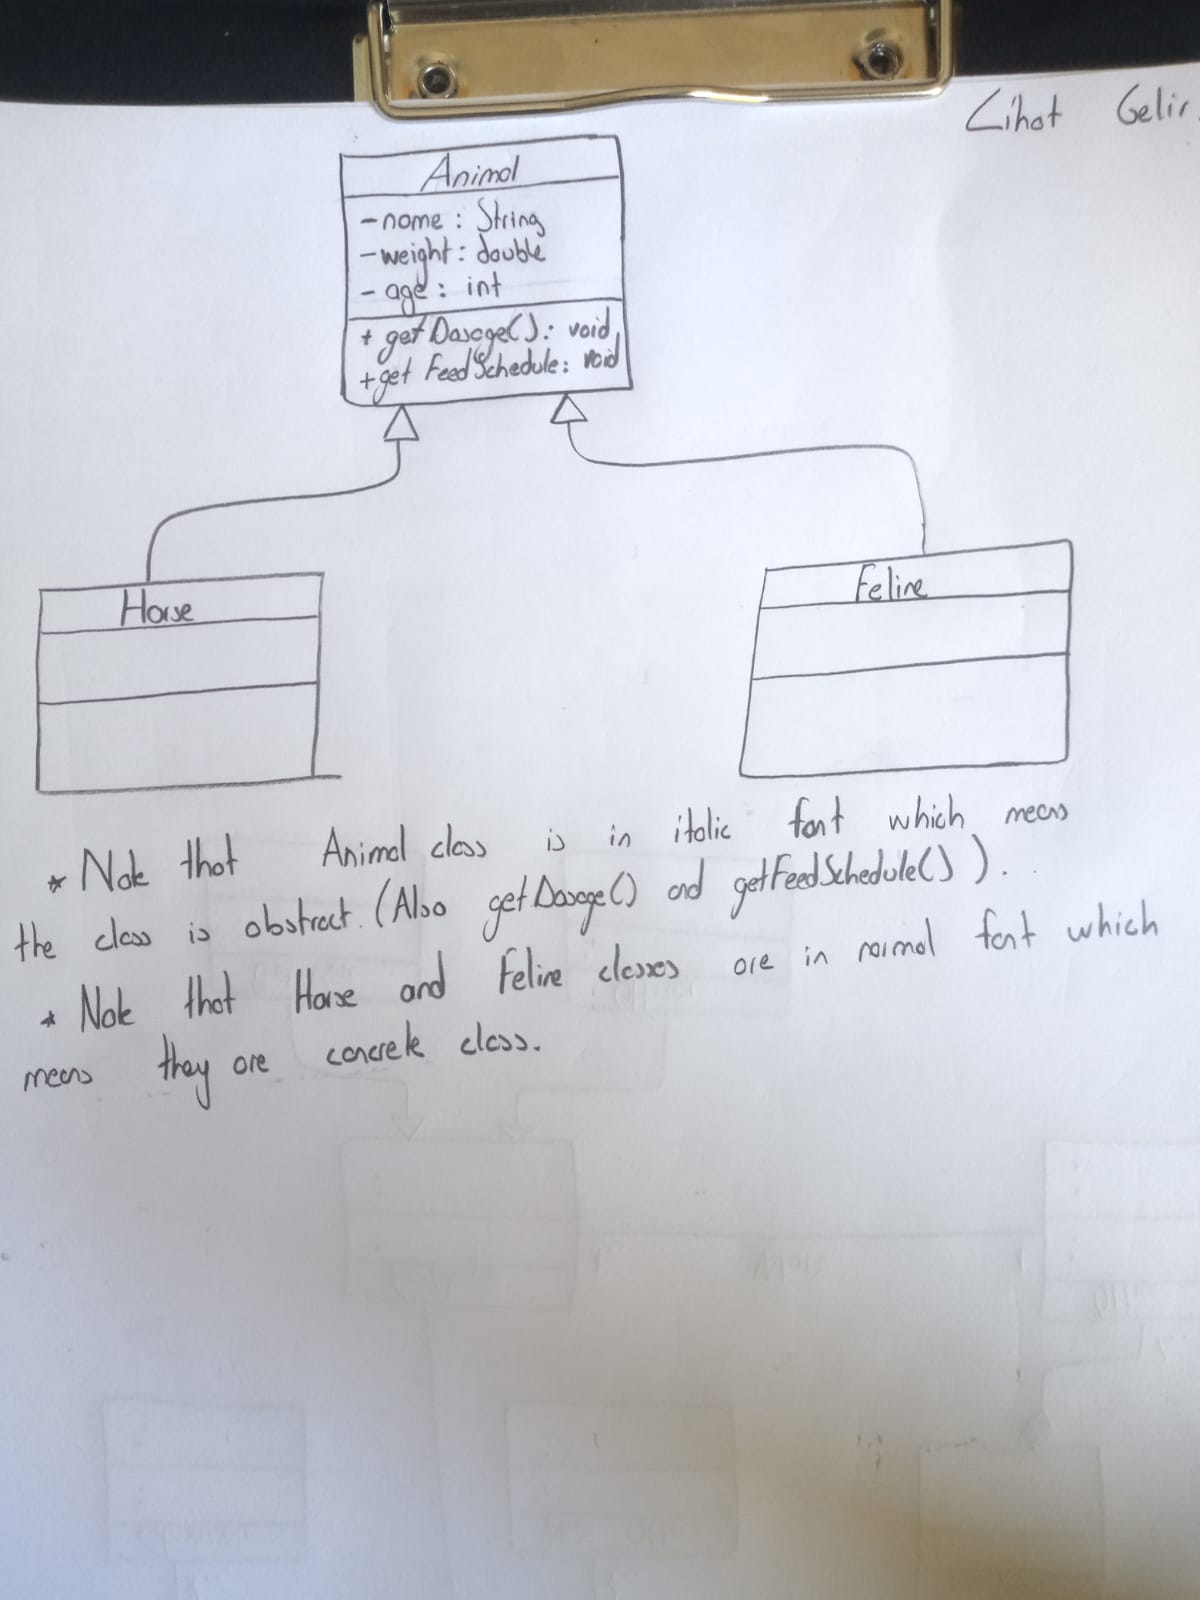 Cihat Gelir
Animal
- name : String
- weight : double
- age : int
+ getDosage() : void
+ get FeedSchedule : void
Horse
Feline
* Note that Animal class is in italic font which means
the class is abstract. (Also getDosage() and getFeedSchedule() ).
* Note that Horse and Feline classes are in normal font which
means they are concrete class.